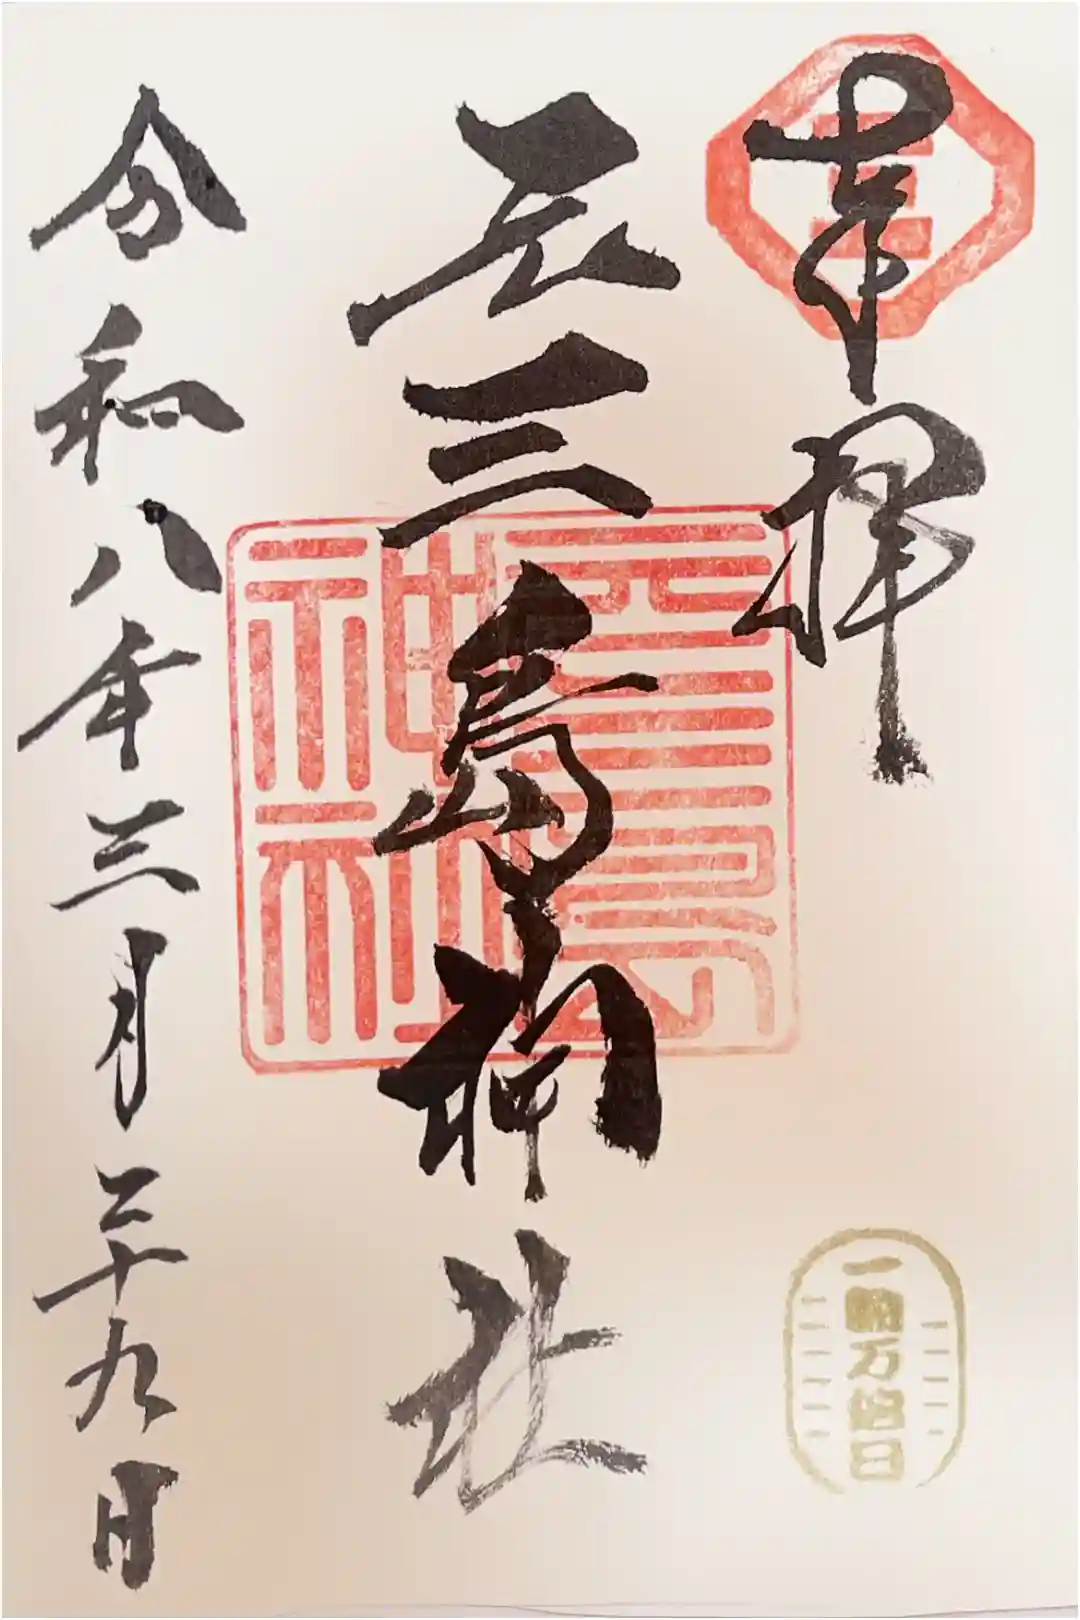 奉拝
三
元三島神社
元三島
神社
令和八年三月二十九日
一粒万倍日